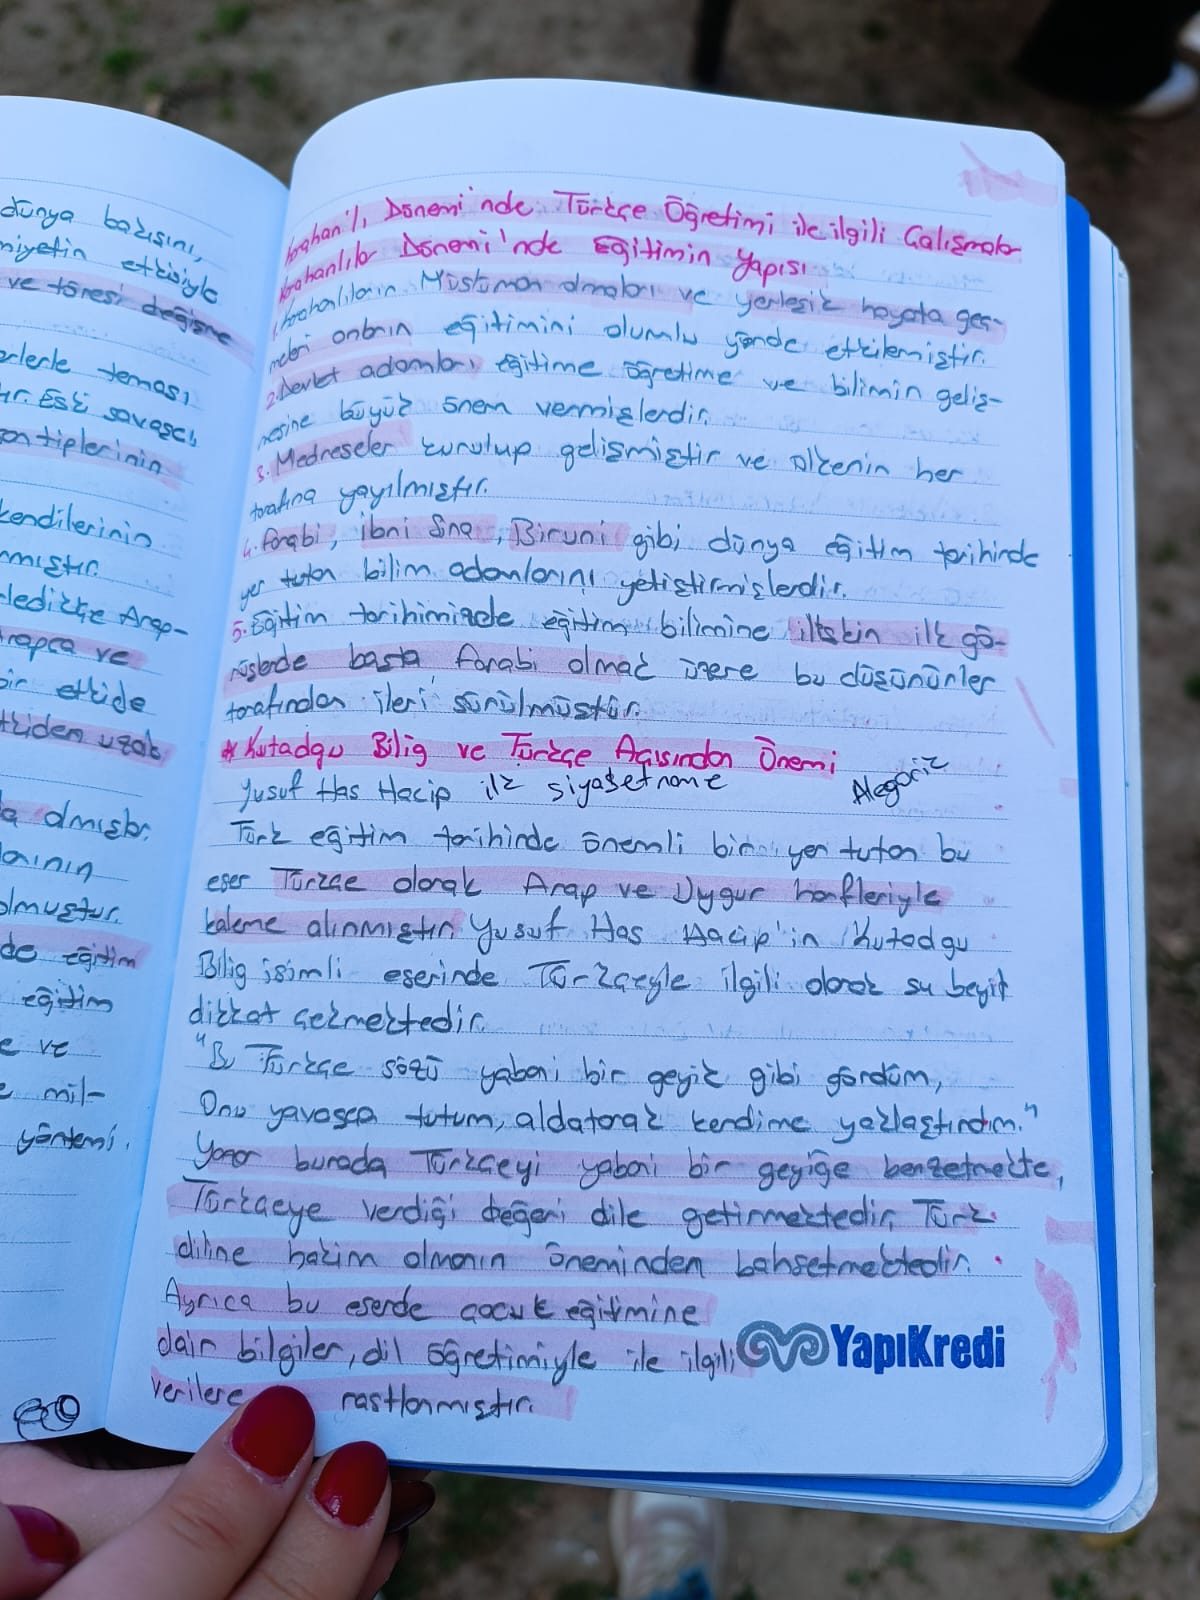 dünya bakışını,
miyetin etkisiyle
ve töresi değişme
erlerle teması
ır. Eski savaşçı
on tiplerinin
kendilerinin
nmıştır.
ledikçe Arap-
Arapça ve
bir etkide
etkiden uzak
olmuştur.
de eğitim
eğitim
e ve
e mil-
yöntemi.
Karahanlı Dönemi'nde Türkçe Öğretimi ile ilgili Çalışmalar
Karahanlılar Dönemi'nde Eğitimin Yapısı
1. Karahanlıların Müslüman olmaları ve yerleşik hayata geç-
meleri onların eğitimini olumlu yönde etkilemiştir.
2. Devlet adamları eğitime öğretime ve bilimin geliş-
mesine büyük önem vermişlerdir.
3. Medreseler kurulup gelişmiştir ve ülkenin her
tarafına yayılmıştır.
4. Farabi, İbni Sina, Biruni gibi dünya eğitim tarihinde
yer tutan bilim adamlarını yetiştirmişlerdir.
5. Eğitim tarihimizde eğitim bilimine ilişkin ilk gö-
rüşlerde başta Farabi olmak üzere bu düşünürler
tarafından ileri sürülmüştür.
* Kutadgu Bilig ve Türkçe Açısından Önemi
Yusuf Has Hacip ilk siyasetname Alegorik
Türk eğitim tarihinde önemli bir yer tutan bu
eser Türkçe olarak Arap ve Uygur harfleriyle
kaleme alınmıştır. Yusuf Has Hacip'in Kutadgu
Bilig isimli eserinde Türkçeyle ilgili olarak şu beyit
dikkat çekmektedir.
"Bu Türkçe sözü yabani bir geyik gibi gördüm,
Onu yavaşça tutum, aldatarak kendime yaklaştırdım."
Yazar burada Türkçeyi yabani bir geyiğe benzetmekte,
Türkçeye verdiği değeri dile getirmektedir. Türk
diline hakim olmanın öneminden bahsetmektedir.
Ayrıca bu eserde çocuk eğitimine
dair bilgiler, dil öğretimiyle ile ilgili
verilere rastlanmıştır.
YapıKredi